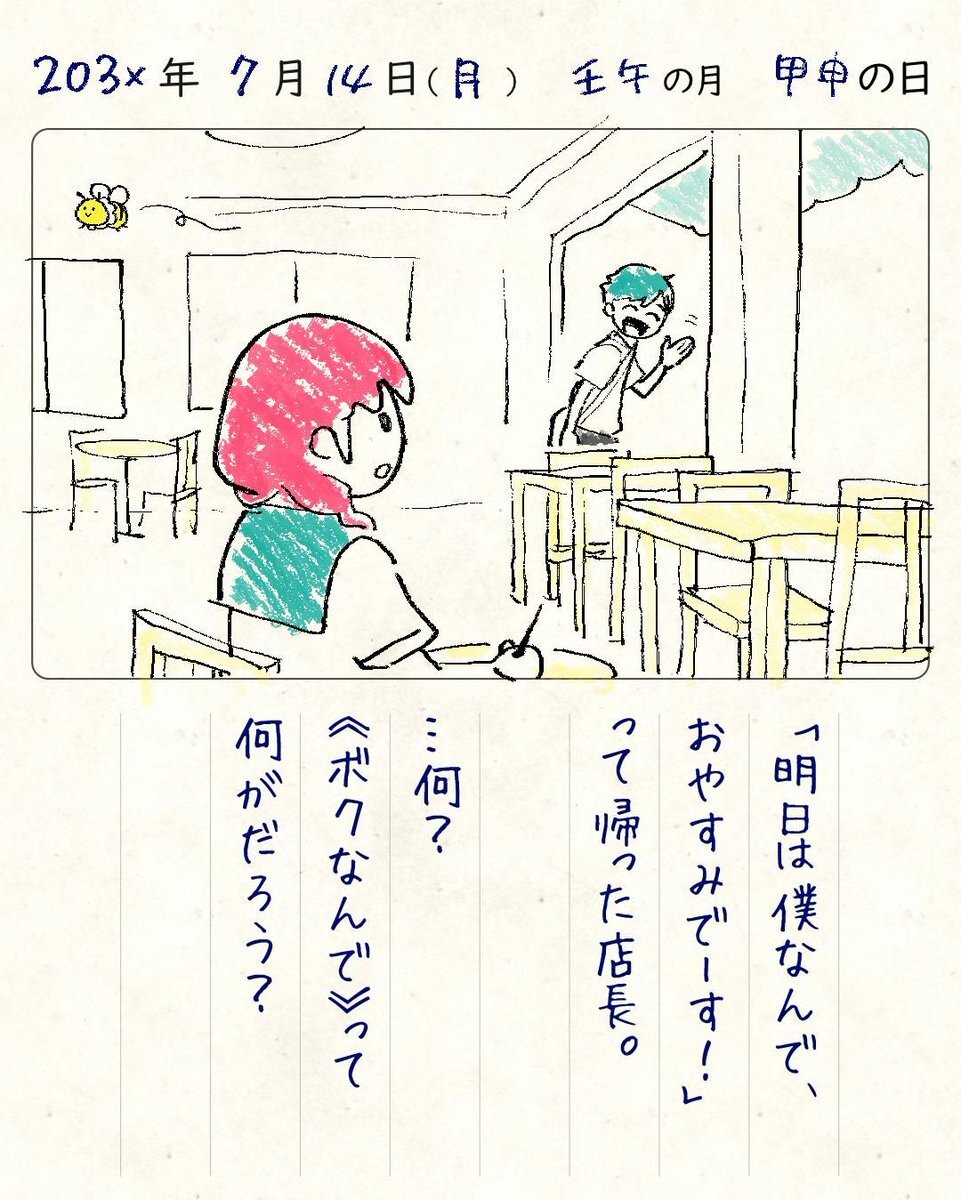 203×年 7月14日(月) 壬午の月 甲申の日
「明日は僕なんで、
おやすみでーす!」
って帰った店長。
…何?
《ボクなんで》って
何がだろう?